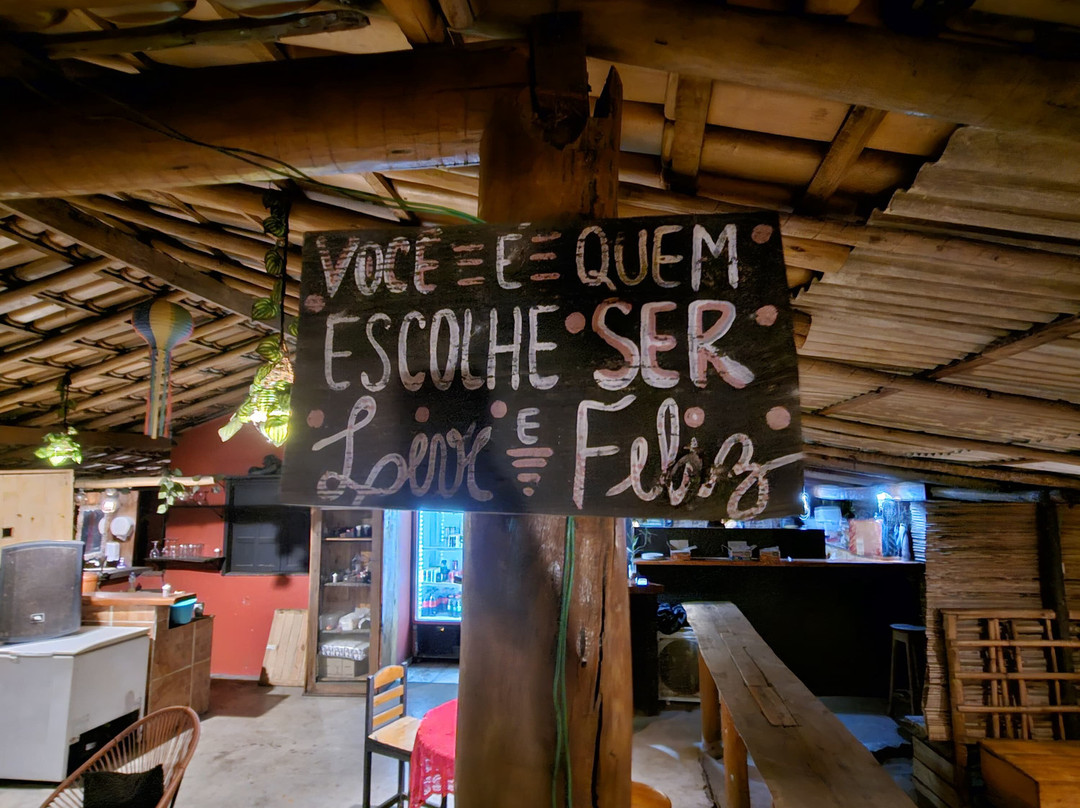 VOCÊ É QUEM
ESCOLHE SER
Livre E Feliz